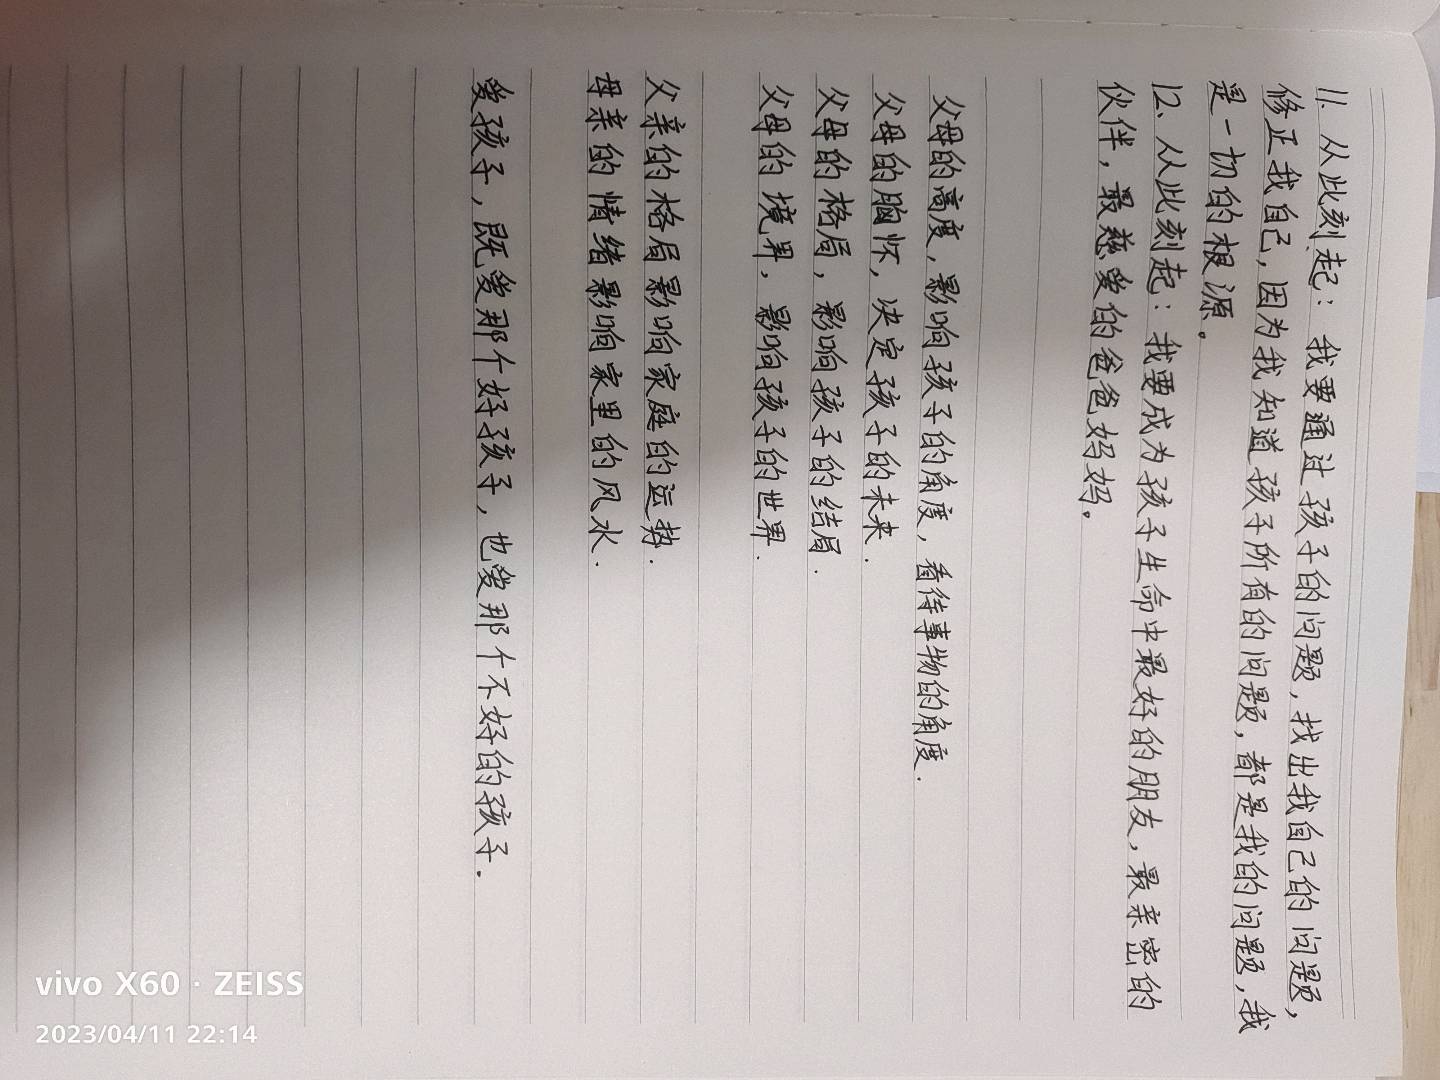 11、从此刻起：我要通过孩子的问题，找出我自己的问题，
修正我自己，因为我知道孩子所有的问题，都是我的问题，我
是一切的根源。
12、从此刻起：我要成为孩子生命中最好的朋友，最亲密的
伙伴，最慈爱的爸爸妈妈。
父母的高度，影响孩子的角度，看待事物的角度.
父母的胸怀，决定孩子的未来.
父母的格局，影响孩子的结局.
父母的境界，影响孩子的世界.
父亲的格局影响家庭的运势.
母亲的情绪影响家里的风水.
爱孩子，既爱那个好孩子，也爱那个不好的孩子.
vivo X60 · ZEISS
2023/04/11 22:14